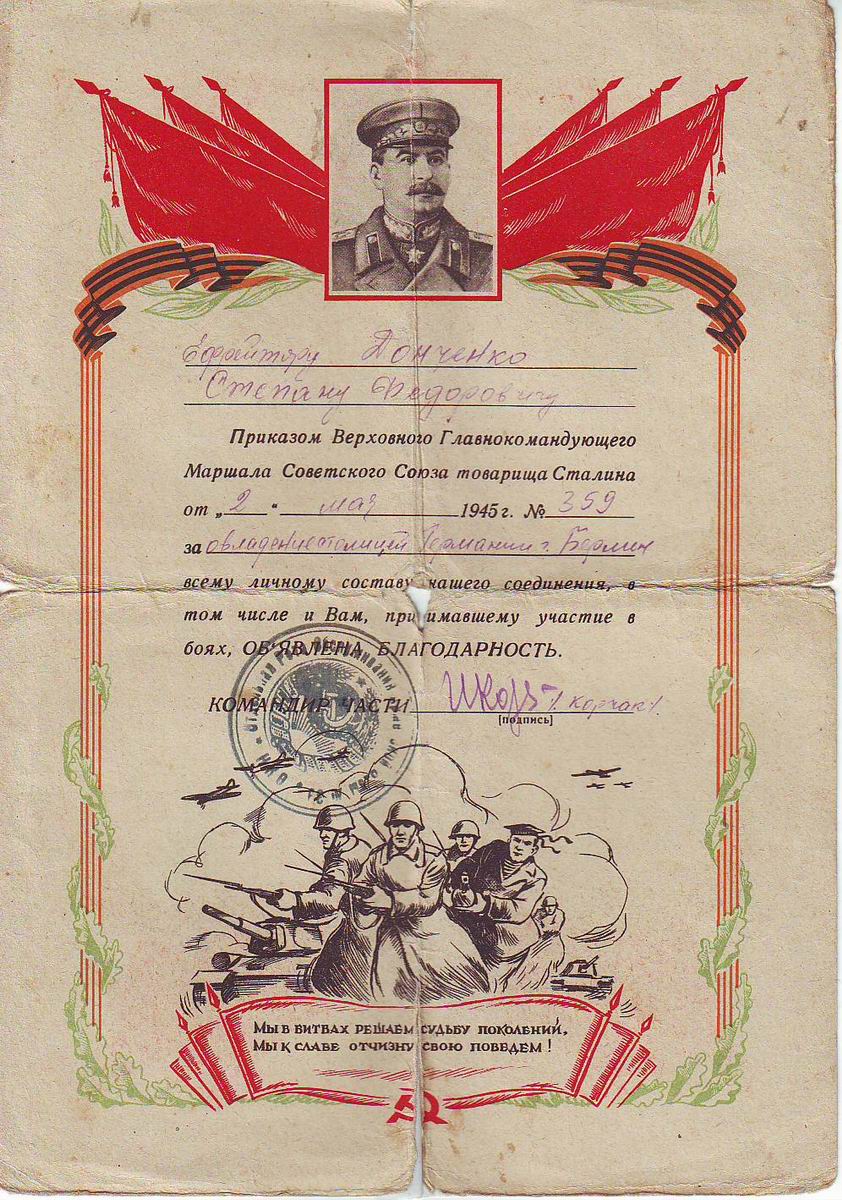 Ефрейтору Донченко
Степану Федоровичу
Приказом Верховного Главнокомандующего
Маршала Советского Союза товарища Сталина
от „2“ мая 1945 г. № 359
за овладение столицей Германии г. Берлин
всему личному составу нашего соединения, в
том числе и Вам, принимавшему участие в
боях, ОБ'ЯВЛЕНА БЛАГОДАРНОСТЬ.
КОМАНДИР ЧАСТИ /Корчак/
[подпись]
Мы в битвах решаем судьбу поколений,
Мы к славе отчизну свою поведем!